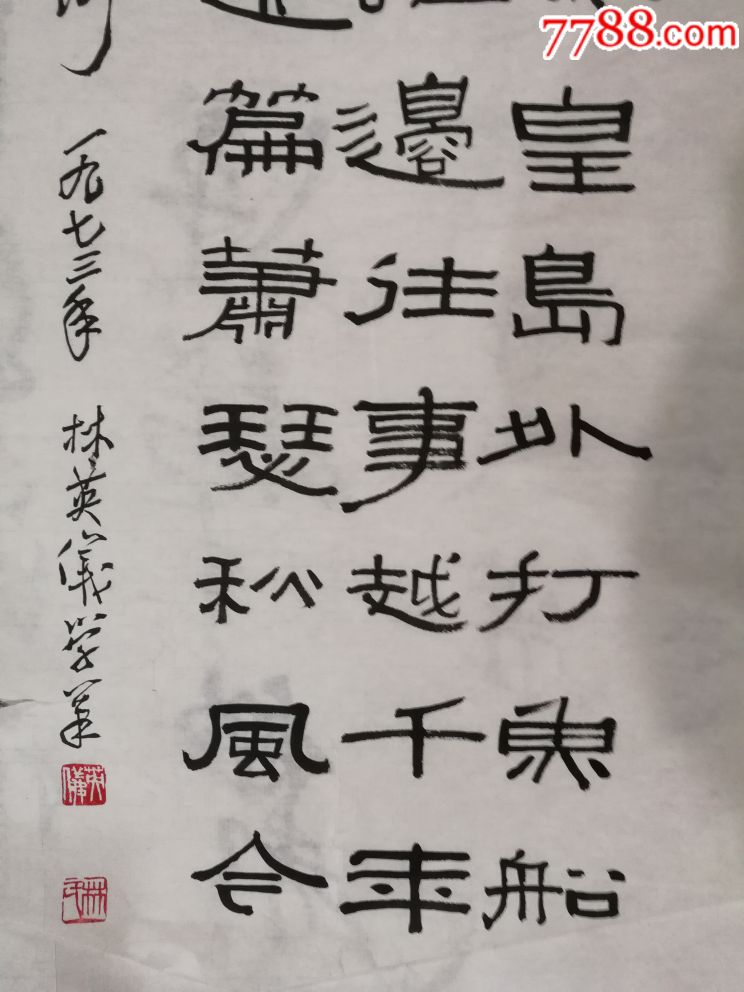 7788.com
皇島外打魚船
邊往事越千年
篇蕭瑟秋風今
一九七三年 林英儀學筆
英儀